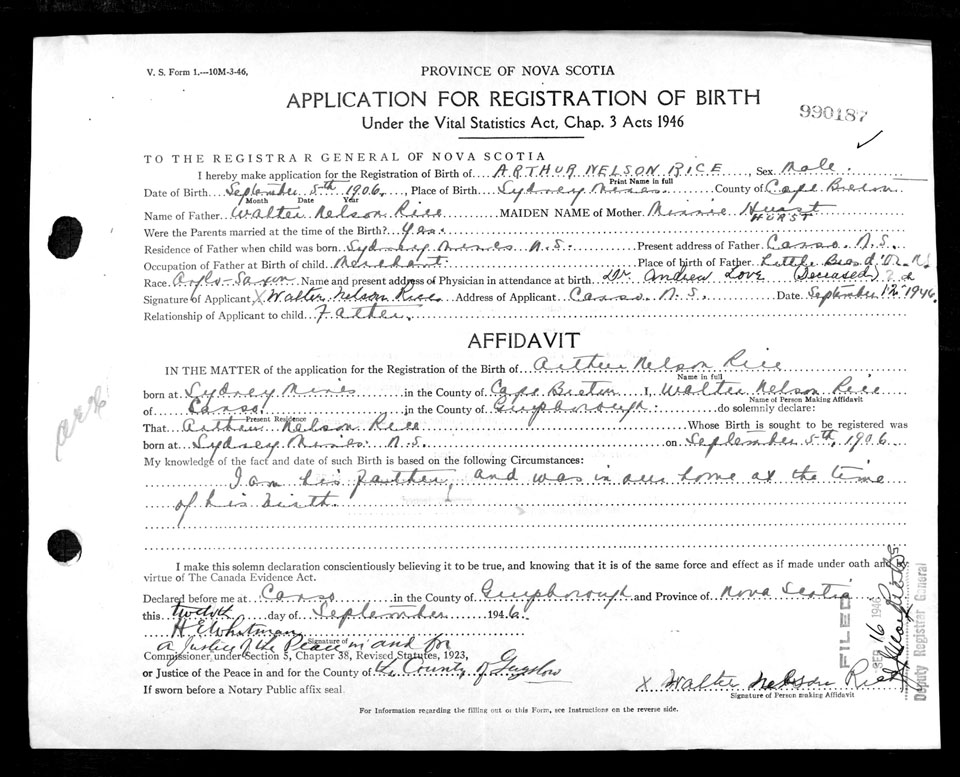 V. S. Form 1.---10M-3-46,
PROVINCE OF NOVA SCOTIA
APPLICATION FOR REGISTRATION OF BIRTH
Under the Vital Statistics Act, Chap. 3 Acts 1946
990187
TO THE REGISTRAR GENERAL OF NOVA SCOTIA
I hereby make application for the Registration of Birth of ARTHUR NELSON RICE, Sex Male.
Print Name in full
Date of Birth September 5th 1906, Place of Birth Sydney Mines. County of Cape Breton
Month Date Year
Name of Father Walter Nelson Rice MAIDEN NAME of Mother Minnie Hurst
HURST
Were the Parents married at the time of Birth? Yes.
Residence of Father when child was born Sydney Mines N.S. Present address of Father Canso. N.S.
Occupation of Father at Birth of child Merchant. Place of birth of Father Little Bras d'Or. N.S.
Race Anglo-Saxon Name and present address of Physician in attendance at birth Dr. Andrew Love (Deceased)
Signature of Applicant X Walter Nelson Rice Address of Applicant Canso. N.S. Date September 12 1946
Relationship of Applicant to child Father.
AFFIDAVIT
IN THE MATTER of the application for the Registration of the Birth of Arthur Nelson Rice
Name in full
born at Sydney Mines in the County of Cape Breton I, Walter Nelson Rice
Name of Person Making Affidavit
of Canso. in the County of Guysborough. do solemnly declare:
Present Residence
That Arthur Nelson Rice Whose Birth is sought to be registered was
born at Sydney Mines. N.S. on September 5th, 1906
My knowledge of the fact and date of such Birth is based on the following Circumstances:
I am his father, and was in our home at the time
of his birth.
I make this solemn declaration conscientiously believing it to be true, and knowing that it is of the same force and effect as if made under oath and by
virtue of The Canada Evidence Act.
Declared before me at Canso in the County of Guysborough and Province of Nova Scotia
this twelfth day of September 1946
H E Whitman
Signature of
a Justice of the Peace in and for
Commissioner under Section 5, Chapter 38, Revised Statutes, 1923,
or Justice of the Peace in and for the County of the County of Guysboro
If sworn before a Notary Public affix seal.
X Walter Nelson Rice
Signature of Person making Affidavit
FILED
SEP 16 1946
Deputy Registrar General
For Information regarding the filling out of this Form, see Instructions on the reverse side.